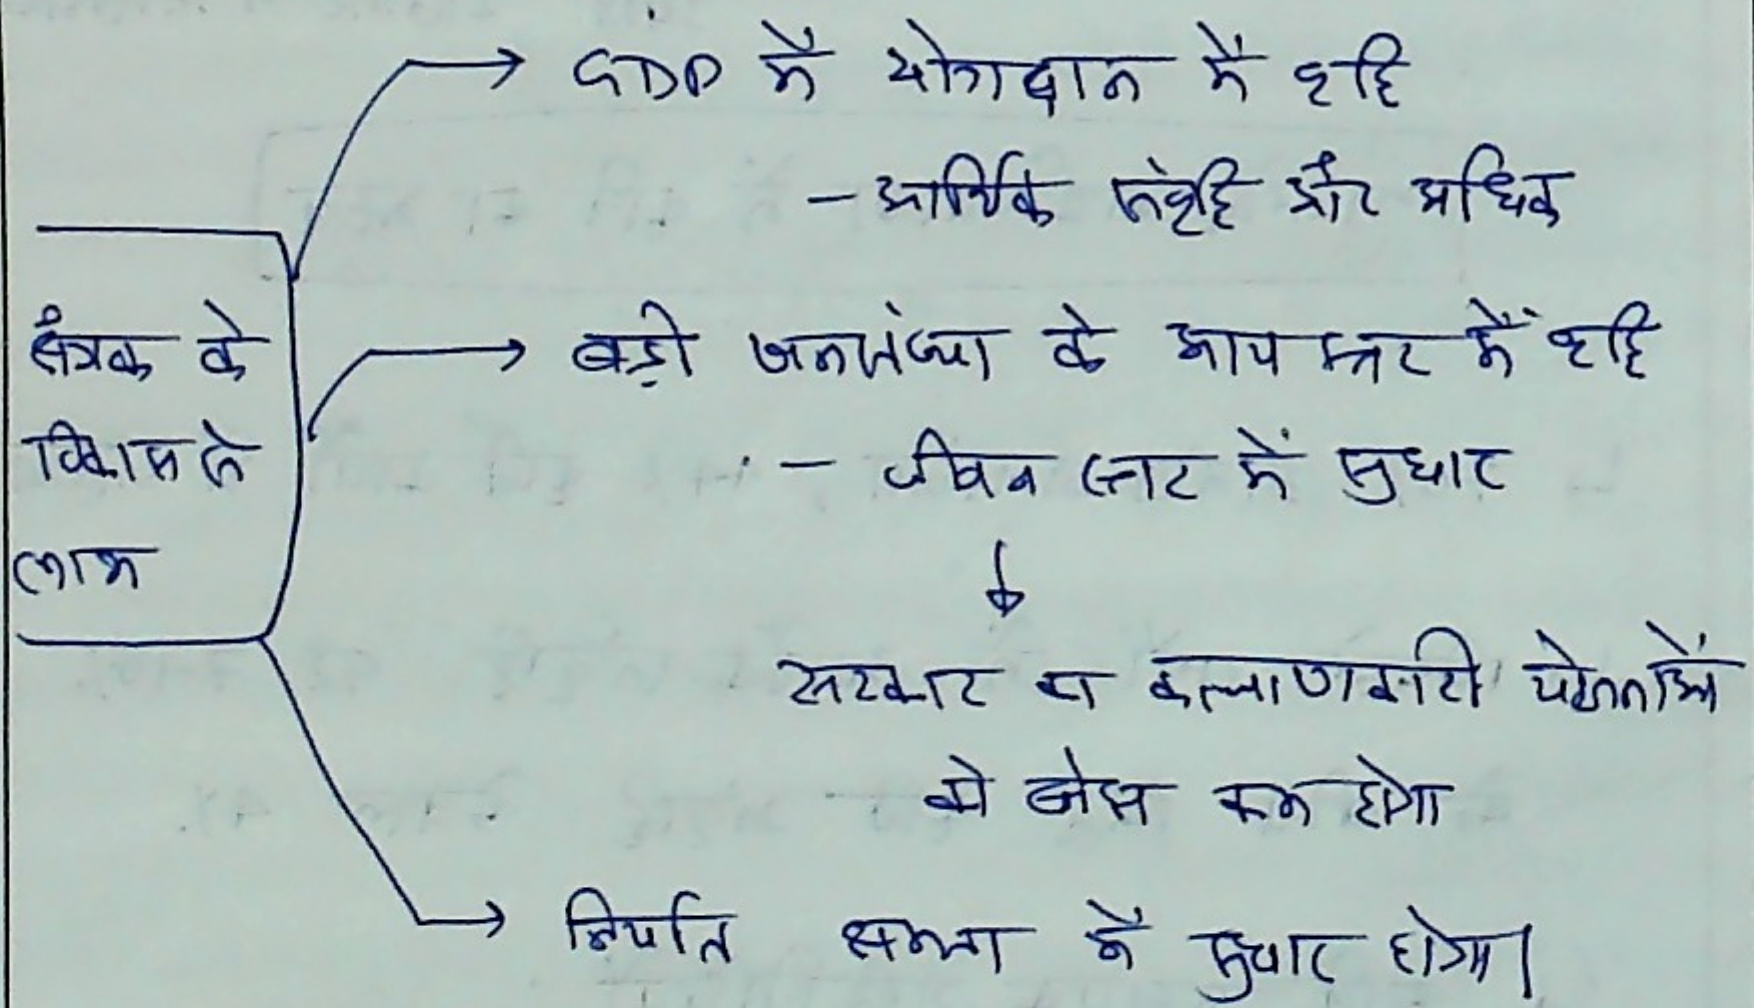 क्षेत्रक के
विकास से
लाभ
→ GDP में योगदान में वृद्धि
- आर्थिक संवृद्धि और अधिक
→ बड़ी जनसंख्या के आय स्तर में वृद्धि
- जीवन स्तर में सुधार
↓
सरकार का कल्याणकारी योजनाओं
को बोझ कम होगा
→ निर्यात क्षमता में सुधार होगा।